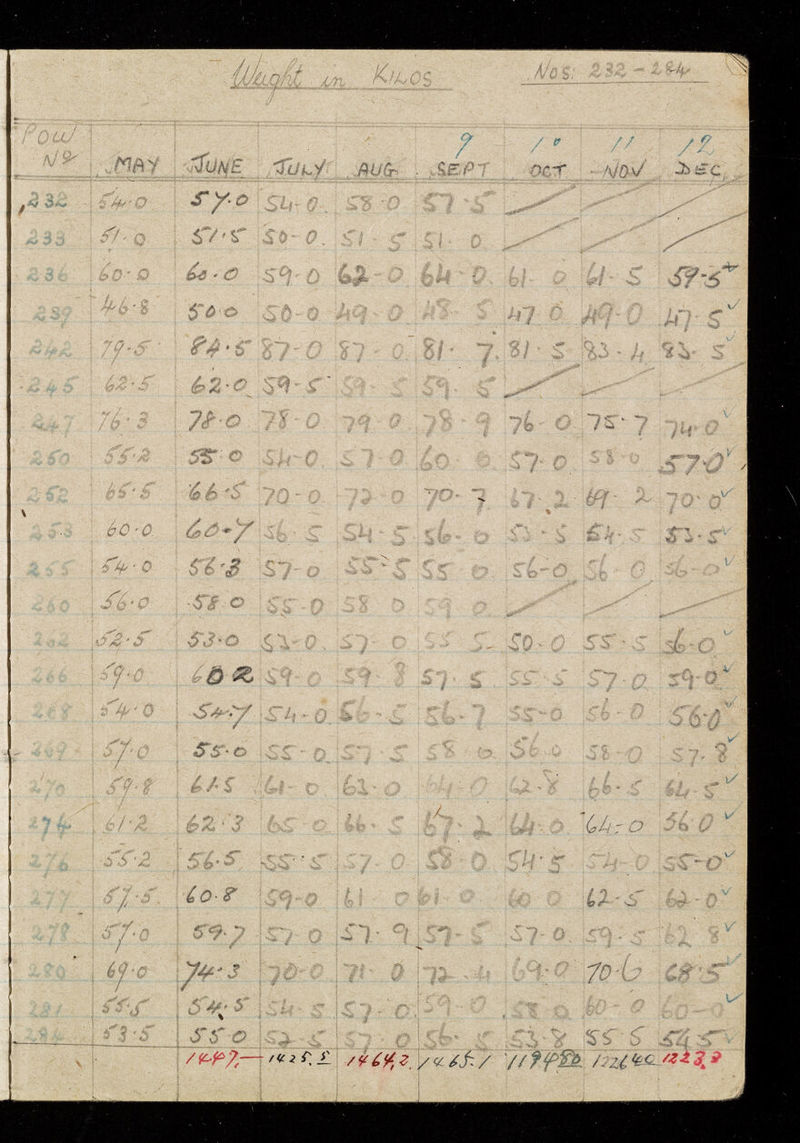 Weight in KILOS Nos: 232 - 284
9 10 11 12
POW No MAY JUNE JULY AUG SEPT OCT NOV DEC
232 54.0 57.0 54-0 58.0 57.5
233 51.0 51.5 50-0 51-5 51.0
236 60-0 60.0 59-0 62-0 64-0 61-0 61-5 59-5
239 46.8 50.0 50-0 49-0 48-5 47 0 49-0 47.5
242 79.5 84.5 87-0 87-0 81.7 81.5 83.4 83.5
245 62.5 62.0 59-5 59-5 59.5
247 76.3 78.0 78-0 79-0 78-9 76-0 75.7 74.0
250 55.2 55.0 54-0 57-0 60-0 57.0 58-0 57.0
252 65.5 66.5 70-0 72-0 70-7 67.2 69-2 70.0
253 60.0 60-7 56.5 54-5 56-0 53-5 54.5 53.5
255 54.0 56.3 57-0 55-5 55 0 56-0 56-0 56-0
260 56.0 58.0 55-0 58 0 59 0
262 52.5 53.0 53-0 57-0 55 5 50.0 55.5 56.0
266 59.0 60 2 59-0 59-8 57.5 55.5 57.0 59-0
268 54.0 54.7 54-0 56-5 56-7 55-0 56-0 56.0
269 57.0 55.0 55-0 57.5 58 0 56.0 58-0 57.8
270 59.8 61.5 61-0 63.0 64.0 62.8 66.5 64.5
274 61.2 62.3 65-0 66-5 67.2 64.0 64-0 56.0
276 55.2 56.5 55.5 57.0 58.0 54.5 54-0 55-0
277 57.5 60.8 59-0 61 0 61 0 60 0 62-5 62-0
278 57.0 59.7 57 0 57-9 57-5 57-0 59-5 62 8
280 69.0 74.3 70-0 71 0 72.4 69.0 70.6 68.5
281 55.5 54.5 54-5 57-0 59-0 58 0 60-0 60-0
284 53.5 55 0 52-5 57.0 56.5 53.8 55 5 54.5
1447.- 1425.5 1464.2 1465.1 1194 80 1226 40 1223.3